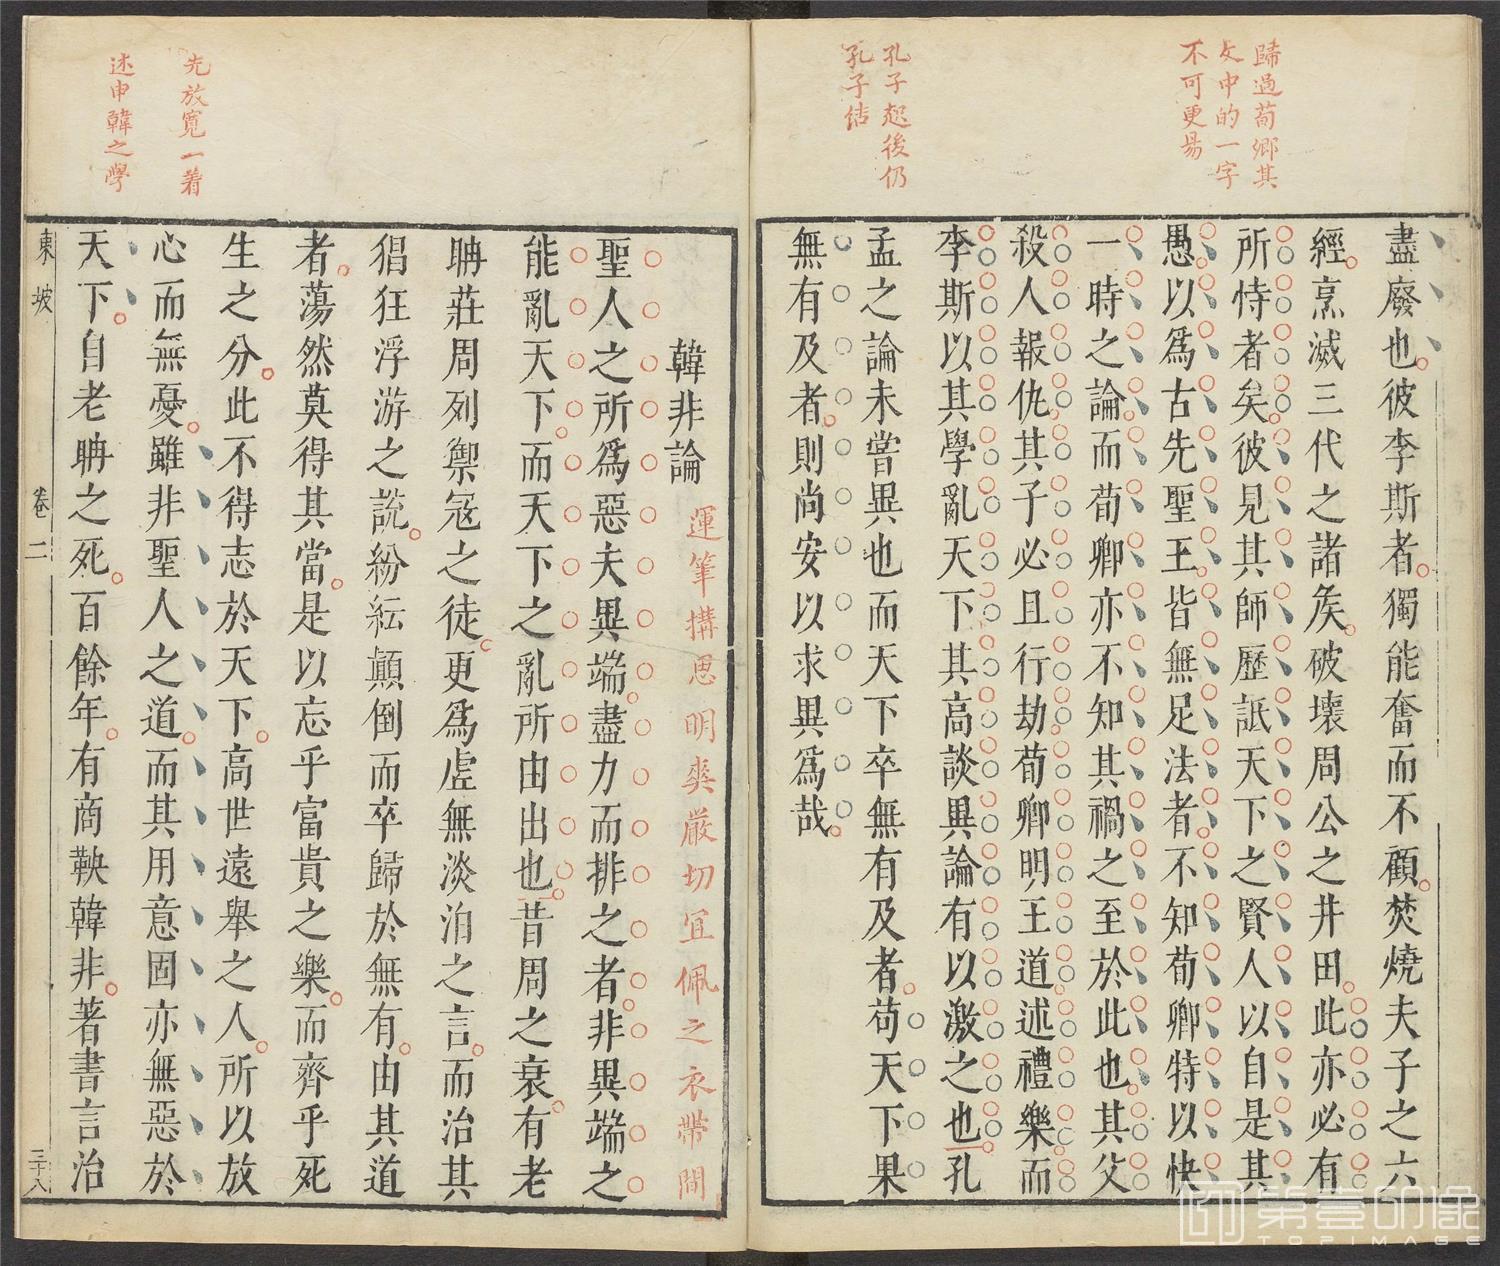 歸過荀鄉其
文中的一字
不可更易
孔子起後仍
孔子結
盡廢也彼李斯者獨能奮而不顧焚燒夫子之六
經烹滅三代之諸矦破壞周公之井田此亦必有
所恃者矣彼見其師歷詆天下之賢人以自是其
愚以爲古先聖王皆無足法者不知荀卿特以快
一時之論而荀卿亦不知其禍之至於此也其父
殺人報仇其子必且行劫荀卿明王道述禮樂而
李斯以其學亂天下其高談異論有以激之也孔
孟之論未嘗異也而天下卒無有及者苟天下果
無有及者則尚安以求異爲哉
先放寬一着
述申韓之學
韓非論
運筆搆思明爽嚴切宜佩之衣帶間
聖人之所爲惡夫異端盡力而排之者非異端之
能亂天下而天下之亂所由出也昔周之衰有老
聃莊周列禦寇之徒更爲虛無淡泊之言而治其
猖狂浮游之說紛紜顛倒而卒歸於無有由其道
者蕩然莫得其當是以忘乎富貴之樂而齊乎死
生之分此不得志於天下高世遠舉之人所以放
心而無憂雖非聖人之道而其用意固亦無惡於
天下自老聃之死百餘年有商鞅韓非著書言治
東坡 卷二 三十八
第壹印像
TOPIMAGE